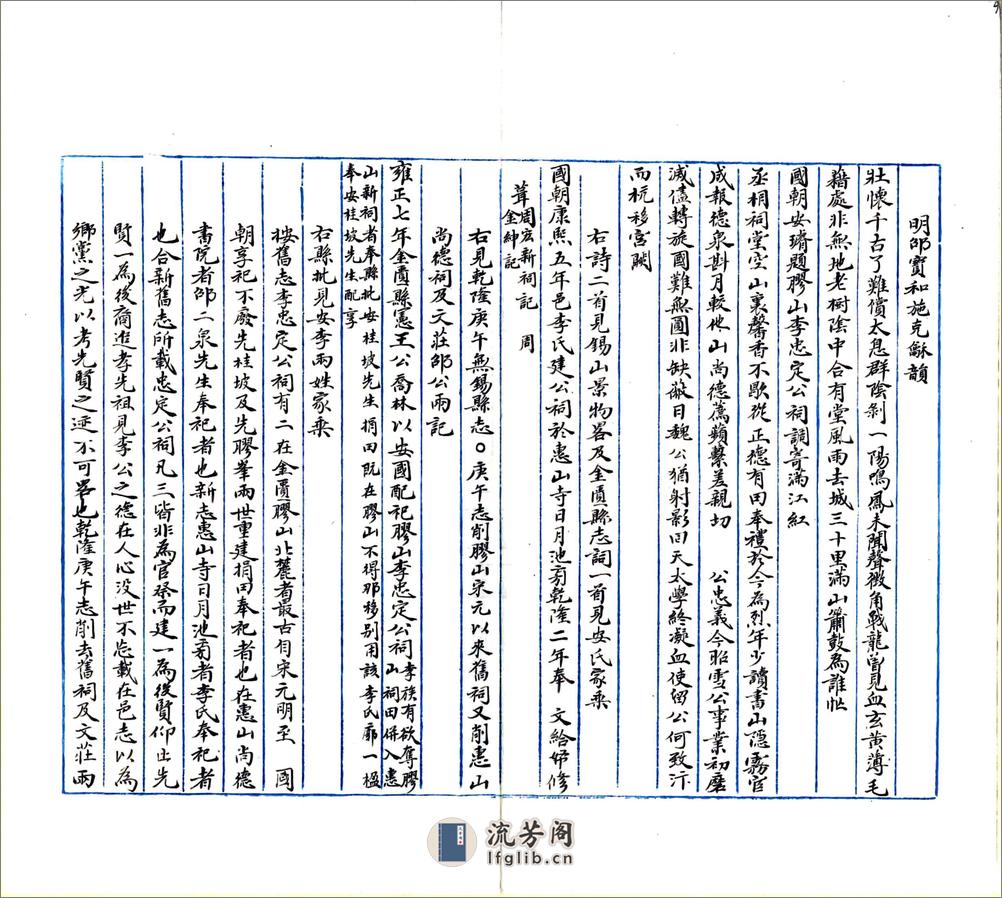 明邵寶和施克龢韻
壯懷千古了難償太息群陰剝一陽鳴鳳未聞聲徵角戰龍曾見血玄黃薄毛
籍處非無地老樹陰中合有堂風雨去城三十里滿山簫鼓為誰忙
國朝安璿題膠山李忠定公祠調寄滿江紅
丞相祠堂空山裏馨香不歇從正德有田奉禮於今為烈年少讀書山隱霧官
成報德泉斟月較他山尚德薦蘋蘩差親切 公忠義今昭雪公事業初磨
滅儘轉旋國難無圓非缺歛日魏公猶射影回天太學終凝血使留公何致汴
而杭移宮闕
右詩二首見錫山景物畧及金匱縣志詞一首見安氏家乘
國朝康熙五年邑李氏建公祠於惠山寺日月池旁乾隆二年奉 文給帑修
葺周宏新祠記 周金紳記
右見乾隆庚午無錫縣志○庚午志削膠山宋元以來舊祠又削惠山
尚德祠及文莊邵公兩記
雍正七年金匱縣憲王公喬林以安國配祀膠山李忠定公祠李族有欲奪膠山祠田併入惠
山新祠者奉縣批安桂坡先生捐田既在膠山不得那移別用該李氏廓一楹奉安桂坡先生配享
右縣批見安李兩姓家乘
按舊志李忠定公祠有二在金匱膠山北麓者最古自宋元明至 國
朝享祀不廢先桂坡及先膠峯兩世重建捐田奉祀者也在惠山尚德
書院者邵二泉先生奉祀者也新志惠山寺日月池旁者李氏奉祀者
也合新舊志所載忠定公祠凡三皆非為官祭而建一為後賢仰止先
賢一為後裔追孝先祖見李公之德在人心沒世不忘載在邑志以為
鄉黨之光以考先賢之迹不可畧也乾隆庚午志削去舊祠及文莊兩
流芳阁
lfglib.cn